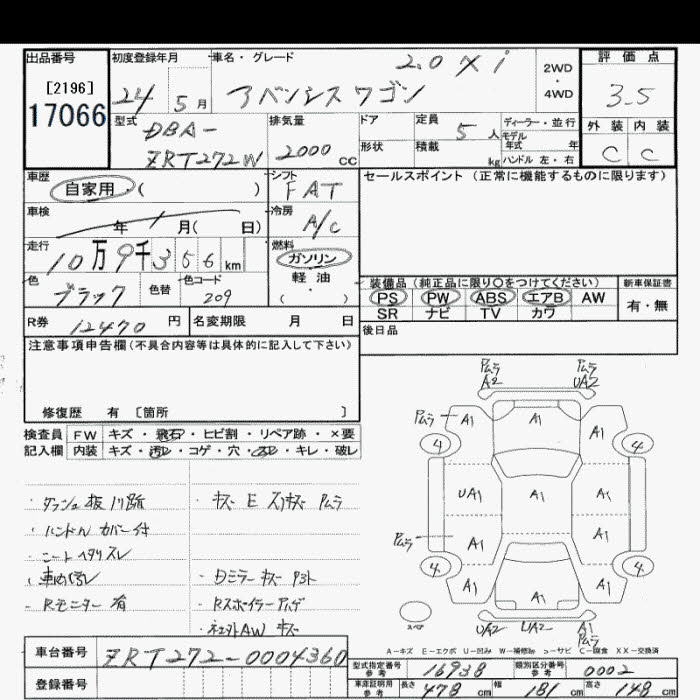 出品番号 初度登録年月 車名・グレード 2.0 Xi 2WD・4WD 評価点
[2196]
17066 24 5月 アベンシスワゴン 3.5
型式 DBA-ZRT272W 排気量 2000cc ドア 定員 5人 ディーラー・並行 外装 内装
形状 積載 kg モデル年式 年 ハンドル 左・右 C C
車歴 自家用 ( ) シフト FAT セールスポイント (正常に機能するものに限ります)
車検 年 月( 日) 冷房 A/C
走行 10万9千356km 燃料 ガソリン
軽油・( )
色 ブラック 色替 色コード 209
装備品 (純正品に限り〇をつけてください) 新車保証書
PS PW ABS エアB AW 有・無
SR ナビ TV カワ
R券 12470円 名変期限 月 日 後日品
注意事項申告欄(不具合内容等は具体的に記入して下さい)
修復歴 有 [箇所 ]
検査員 FW キズ・飛石・ヒビ割・リペア跡・×要
記入欄 内装 キズ・汚レ・コゲ・穴・スレ・キレ・破レ
ハンドルカバー付
Rモニター有
キズ E スリキズ Pムラ
Dミラーキズ
Pムラ A2
Pムラ UA2
Pムラ A1 A1 A1
4 4
UA1 A1 A1
Pムラ A1 A1 A1
4 4
A1 A1 A1
スペア UA2 UA2 A1 Pムラ
A-キズ E-エクボ U-凹み W-補修跡 S-サビ C-腐食 XX-交換済
車台番号 ZRT272-0004360
登録番号
型式指定番号 参考 16938 類別区分番号 参考 0002
車庫証明用 参考 長さ 478cm 幅 181cm 高さ 148cm